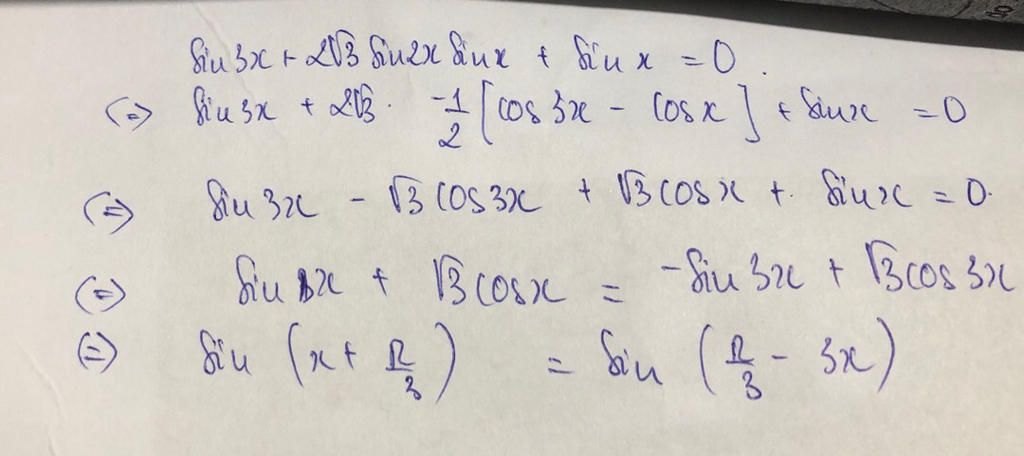 sin3x + 2√3 sin2x sinx + sin x = 0.
(=) sin3x + 2√3. -1/2 [cos 3x - cosx] + sinx = 0
(=) sin 3x - √3 cos3x + √3 cosx + sinx = 0.
(=) sin x + √3 cosx = -sin 3x + √3 cos 3x
(=) sin (x + π/3) = sin (π/3 - 3x)